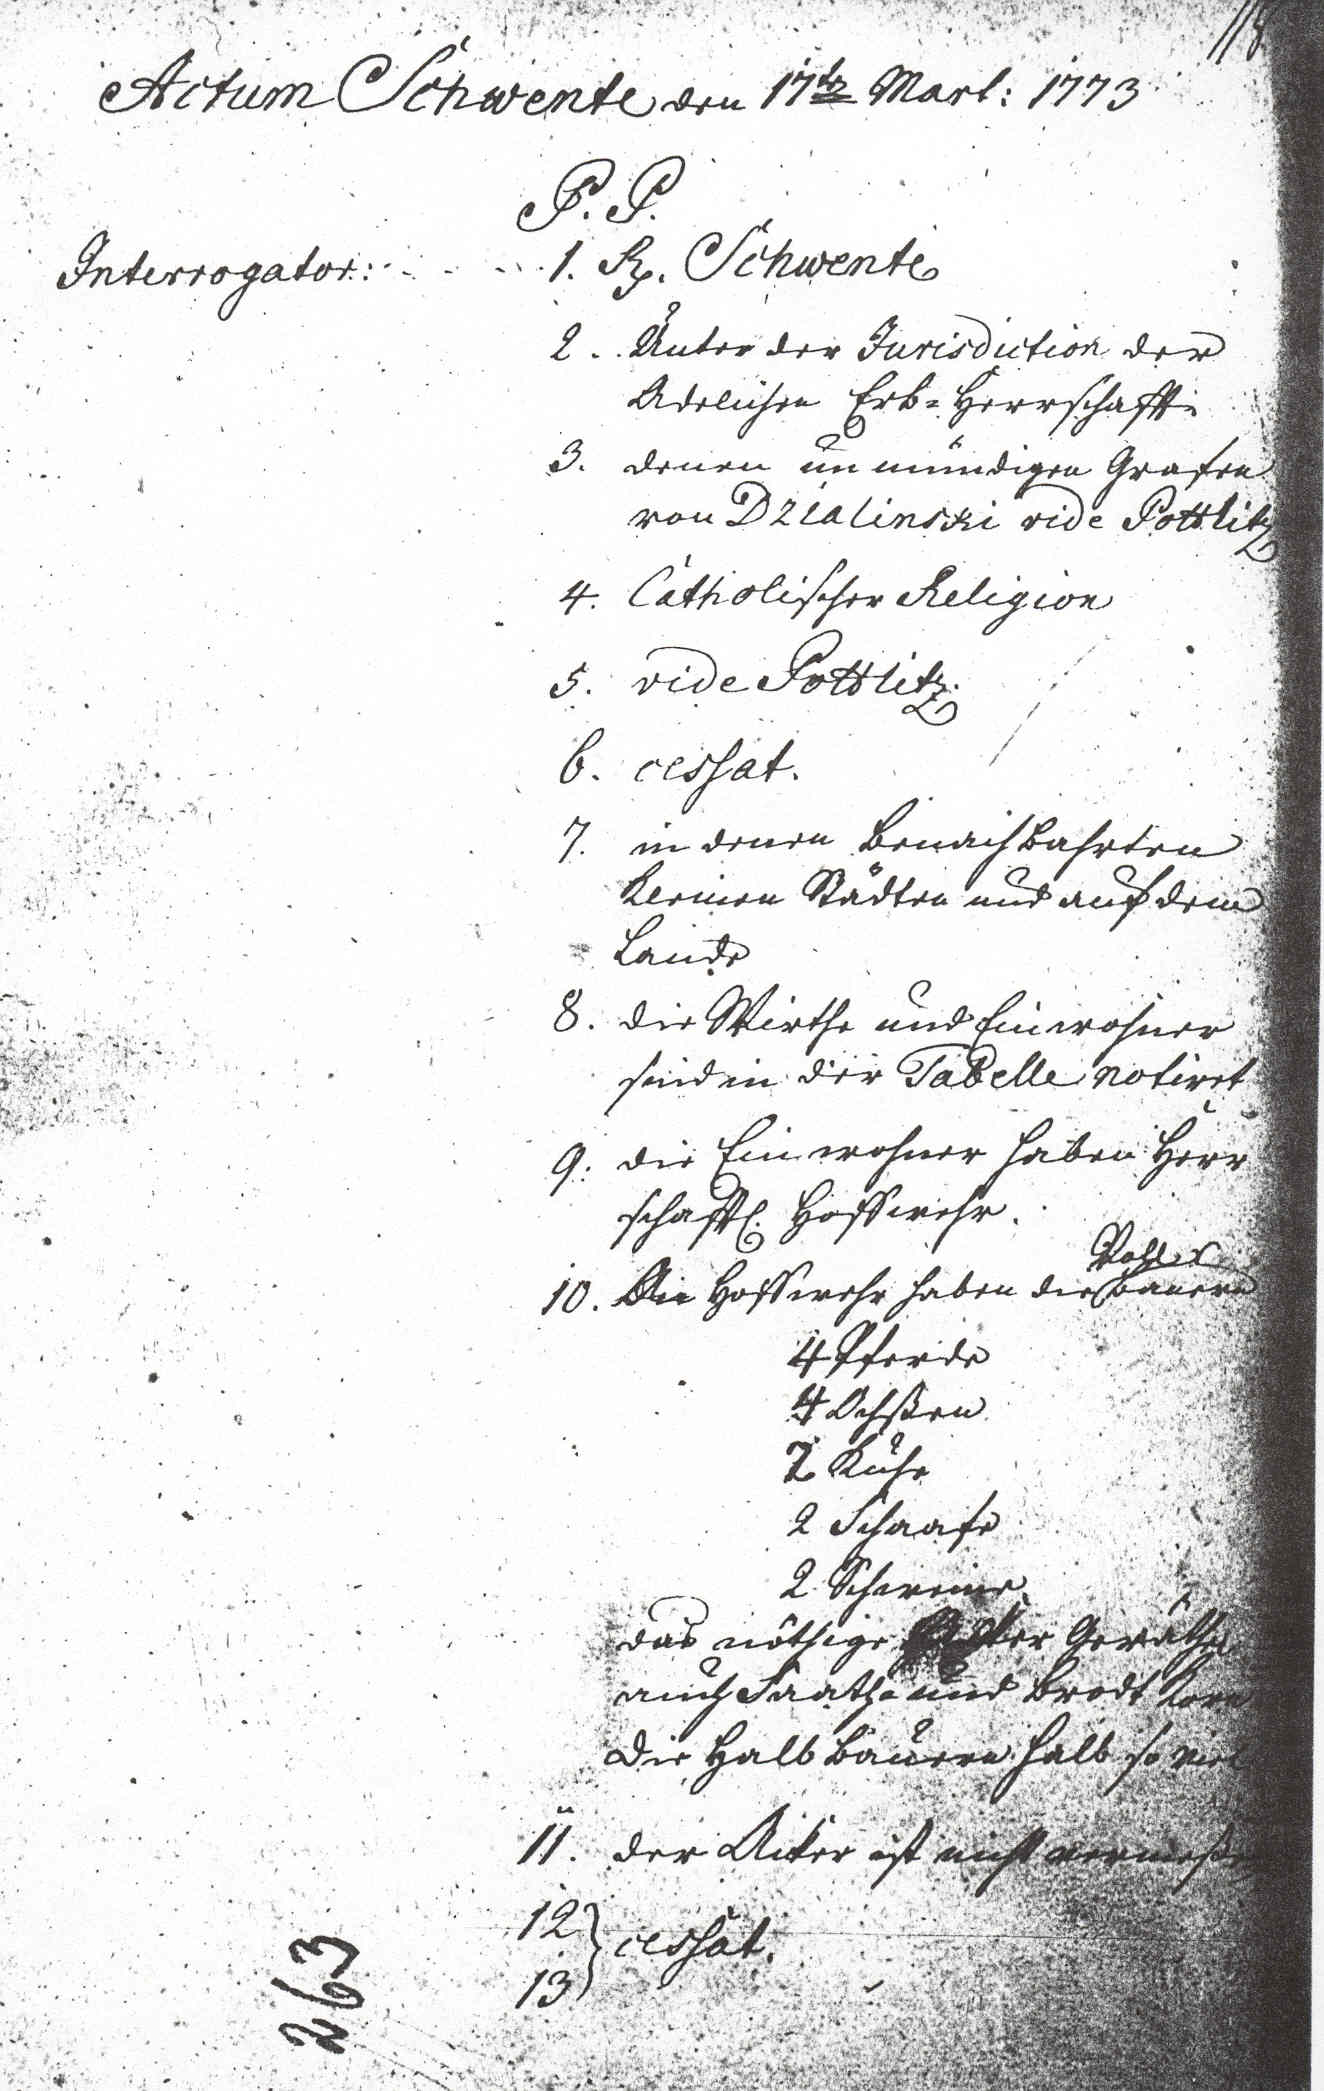 Actum Schwente den 17ten Mart: 1773
P. P.
Interrogator: 1. Rp. Schwente
2. Unter der Jurisdiction der
Adelichen Erb=Herrschafft
3. denen unmündigen Grafen
von Dzialinski vide Pottlitz
4. Catholischer Religion
5. vide Pottlitz.
6. cessat.
7. in denen benachbahrten
kleinen Städten und auf dem
Lande
8. die Wirthe und Einwohner
sind in der Tabelle notiret
9. die Einwohner haben Herr
schafftl. Hoffwehr.
10. An Hoffwehr haben die Voll
bauern
4 Pferde
4 Ochßen
2 Kühe
2 Schaafe
2 Schweine
das nöthige Acker Geräthe
auch Saath= und Brodt Korn
Die Halb bauern halb so viel
11. der Acker ist nicht vermeßen
12
13 } cessat.
263